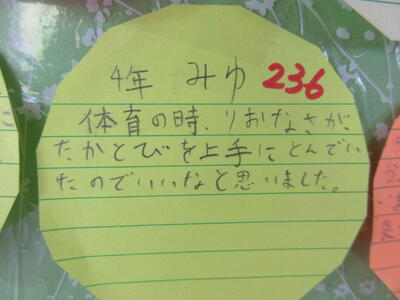 4年 みゆ 236
体育の時、りおなさんが、
たかとびを上手にとんでい
たのでいいなと思いました。